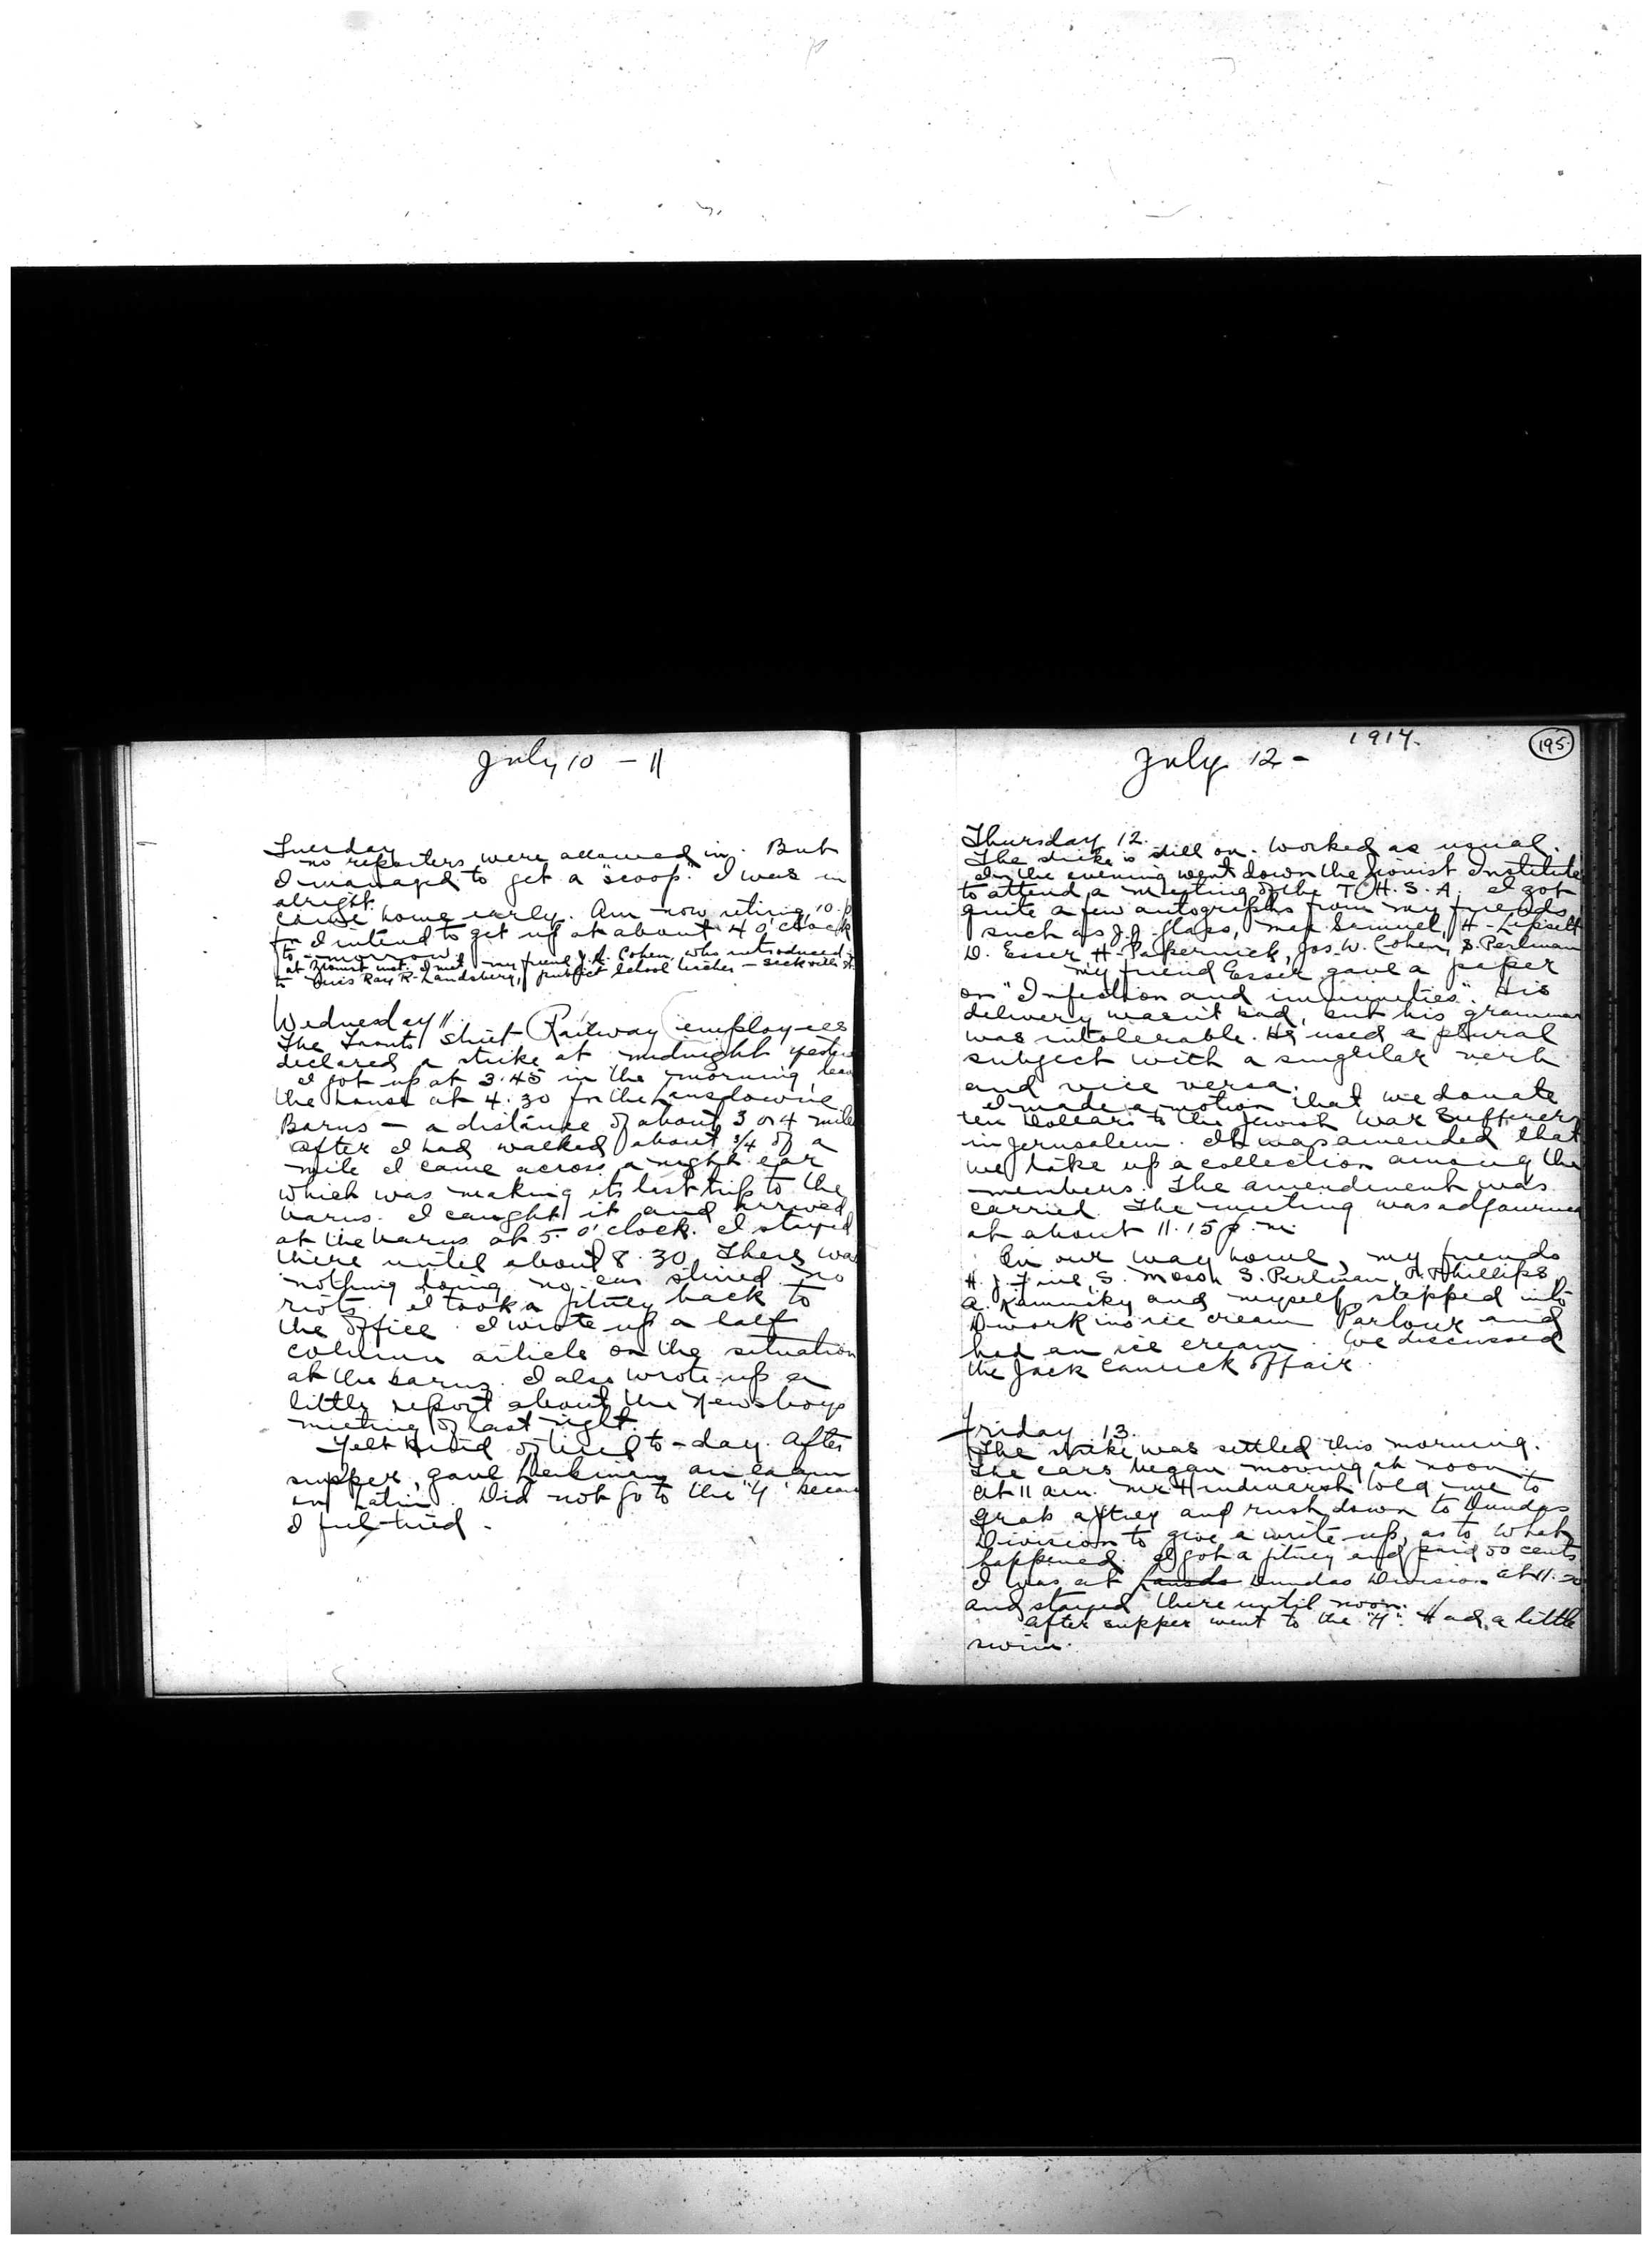 July 10 - 11
Tuesday
no reporters were allowed in. But
I managed to get a "scoop." I was in
alright.
Came home early. Am now retiring, 10. p
for I intend to get up at about 4 o'clock
to-morrow.
at Zionist inst. I met my friend J. A. Cohen, who introduced
to Miss Ray R. Landsberg, public school teacher - Sackville St
Wednesday 11.
The Toronto Street Railway employees
declared a strike at midnight yester
I got up at 3.45 in the morning, leav
the house at 4.30 for the Lansdowne
Barns - a distance of about 3 or 4 mile
After I had walked about 3/4 of a
mile I came across a night car
which was making its last trip to the
barns. I caught it and arrived
at the barns at 5. o'clock. I stayed
there until about 8.30. There was
nothing doing, no car stirred. No
riots. I took a jitney back to
the office. I wrote up a half
column article on the situation
at the barns. I also wrote up a
little report about the Newsboys
meeting of last night.
Felt kind of tired to-day. After
supper, gave an exam
in Latin. Did not go to the "Y" becau
I feel tired.
1917.
195
July 12 -
Thursday 12.
The strike is still on. Worked as usual.
In the evening went down the Zionist Institute
to attend a meeting of the T.H.S.A. I got
quite a few autographs from my friends
such as J.J. Glass, Max Samuel, H. Lipsett
D. Esser, H. Papernick, Jos. W. Cohen, S. Perlman
My friend Esser gave a paper
on "Infection and immunities". His
delivery wasn't bad, but his grammar
was intolerable. He used a plural
subject with a singular verb
and vice versa.
I made a motion that we donate
ten dollars to the Jewish War Sufferers
in Jerusalem. It was amended that
we take up a collection among the
members. The amendment was
carried. The meeting was adjourned
at about 11.15 p.m.
On our way home, my friends
H. J. Fine, S. Moson, S. Perlman, R. Phillips,
A. Kaminsky and myself stepped into
Dworkins ice cream Parlour and
had an ice cream. We discussed
the Jack affair.
Friday 13.
The strike was settled this morning.
The cars began moving at noon.
At 11 a.m. Mr Hindmarsh told me to
grab a jitney and rush down to Dundas
Division to give a write-up, as to what
happened. I got a jitney and paid 50 cents
I was at Lansdo Dundas Division at 11.20
and stayed there until noon.
After supper went to the "Y". Had a little
swim.